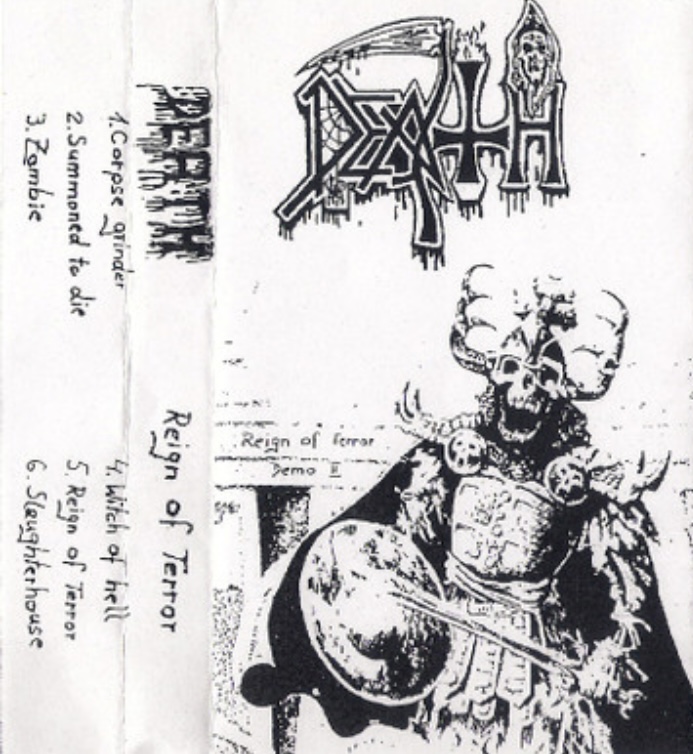 DEATH
Reign of Terror
Demo II
DEATH
Reign of Terror
1. Corpse grinder
2. Summoned to die
3. Zombie
4. Witch of hell
5. Reign of Terror
6. Slaughterhouse